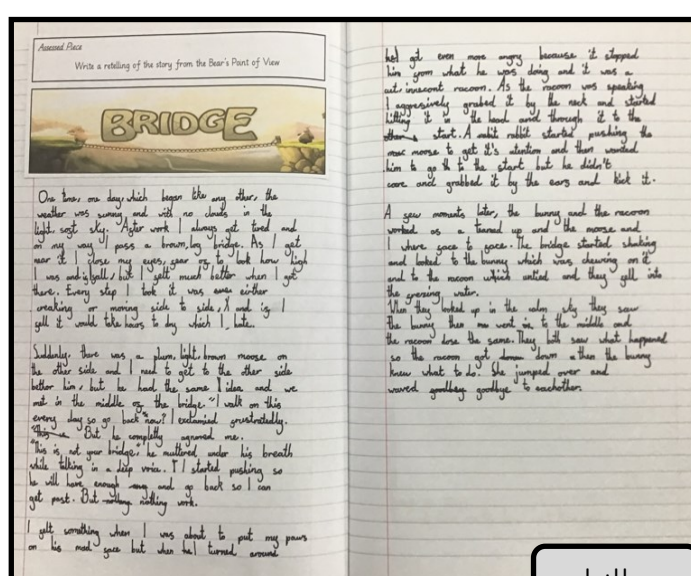 Assessed Piece
Write a retelling of the story from the Bear's Point of View
BRIDGE
One time, one day, which began like any other, the
weather was sunny and with no clouds in the
light, soft sky. After work I always get tired and
on my way I pass a brown, log bridge. As I get
near it I close my eyes, fear of to look how high
I was and if I fall, but I felt much better when I got
there. Every step I took it was eirther
creaking or moving side to side, and if I
fell it would take haors to dry which I hate.
Suddenly, there was a plum, light, brown moose on
the other side and I need to get to the other side
bethor him, but he had the same idea and we
met in the middle of the bridge. "I walk on this
every day so go back now"? I exclamied frustratedly.
But he completly agnored me.
"This is not your bridge," he muttered under his breath
while talking in a deep voria. I started pushing so
he will have enough and go back so I can
get past. But nothing work.
I felt somthing when I was about to put my paws
on his mad face but when he turned around
he got even more angry because it stopped
him from what he was doing and it was a
cut innecont racoon. As the racoon was speaking
I aggresively grabed it by the neck and started
hitting it in the head and through it to the
start. A rabbit started pushing the
moose to get it's atention and then wanted
him to go to the start but he didn't
care and grabbed it by the ears and kick it.
A few moments later, the bunny and the racoon
worked as a tanned up and the moose and
I where face to face. The bridge started shaking
and looked to the bunny which was chewing on it
and to the racoon which untied and they fell into
the freezing water.
When they looked up in the calm sky they saw
the bunny then went in to the middle and
the racoon dose the same. They both saw what happened
so the racoon got down then the bunny
knew what to do. She jumped over and
waved goodbye to eachother.